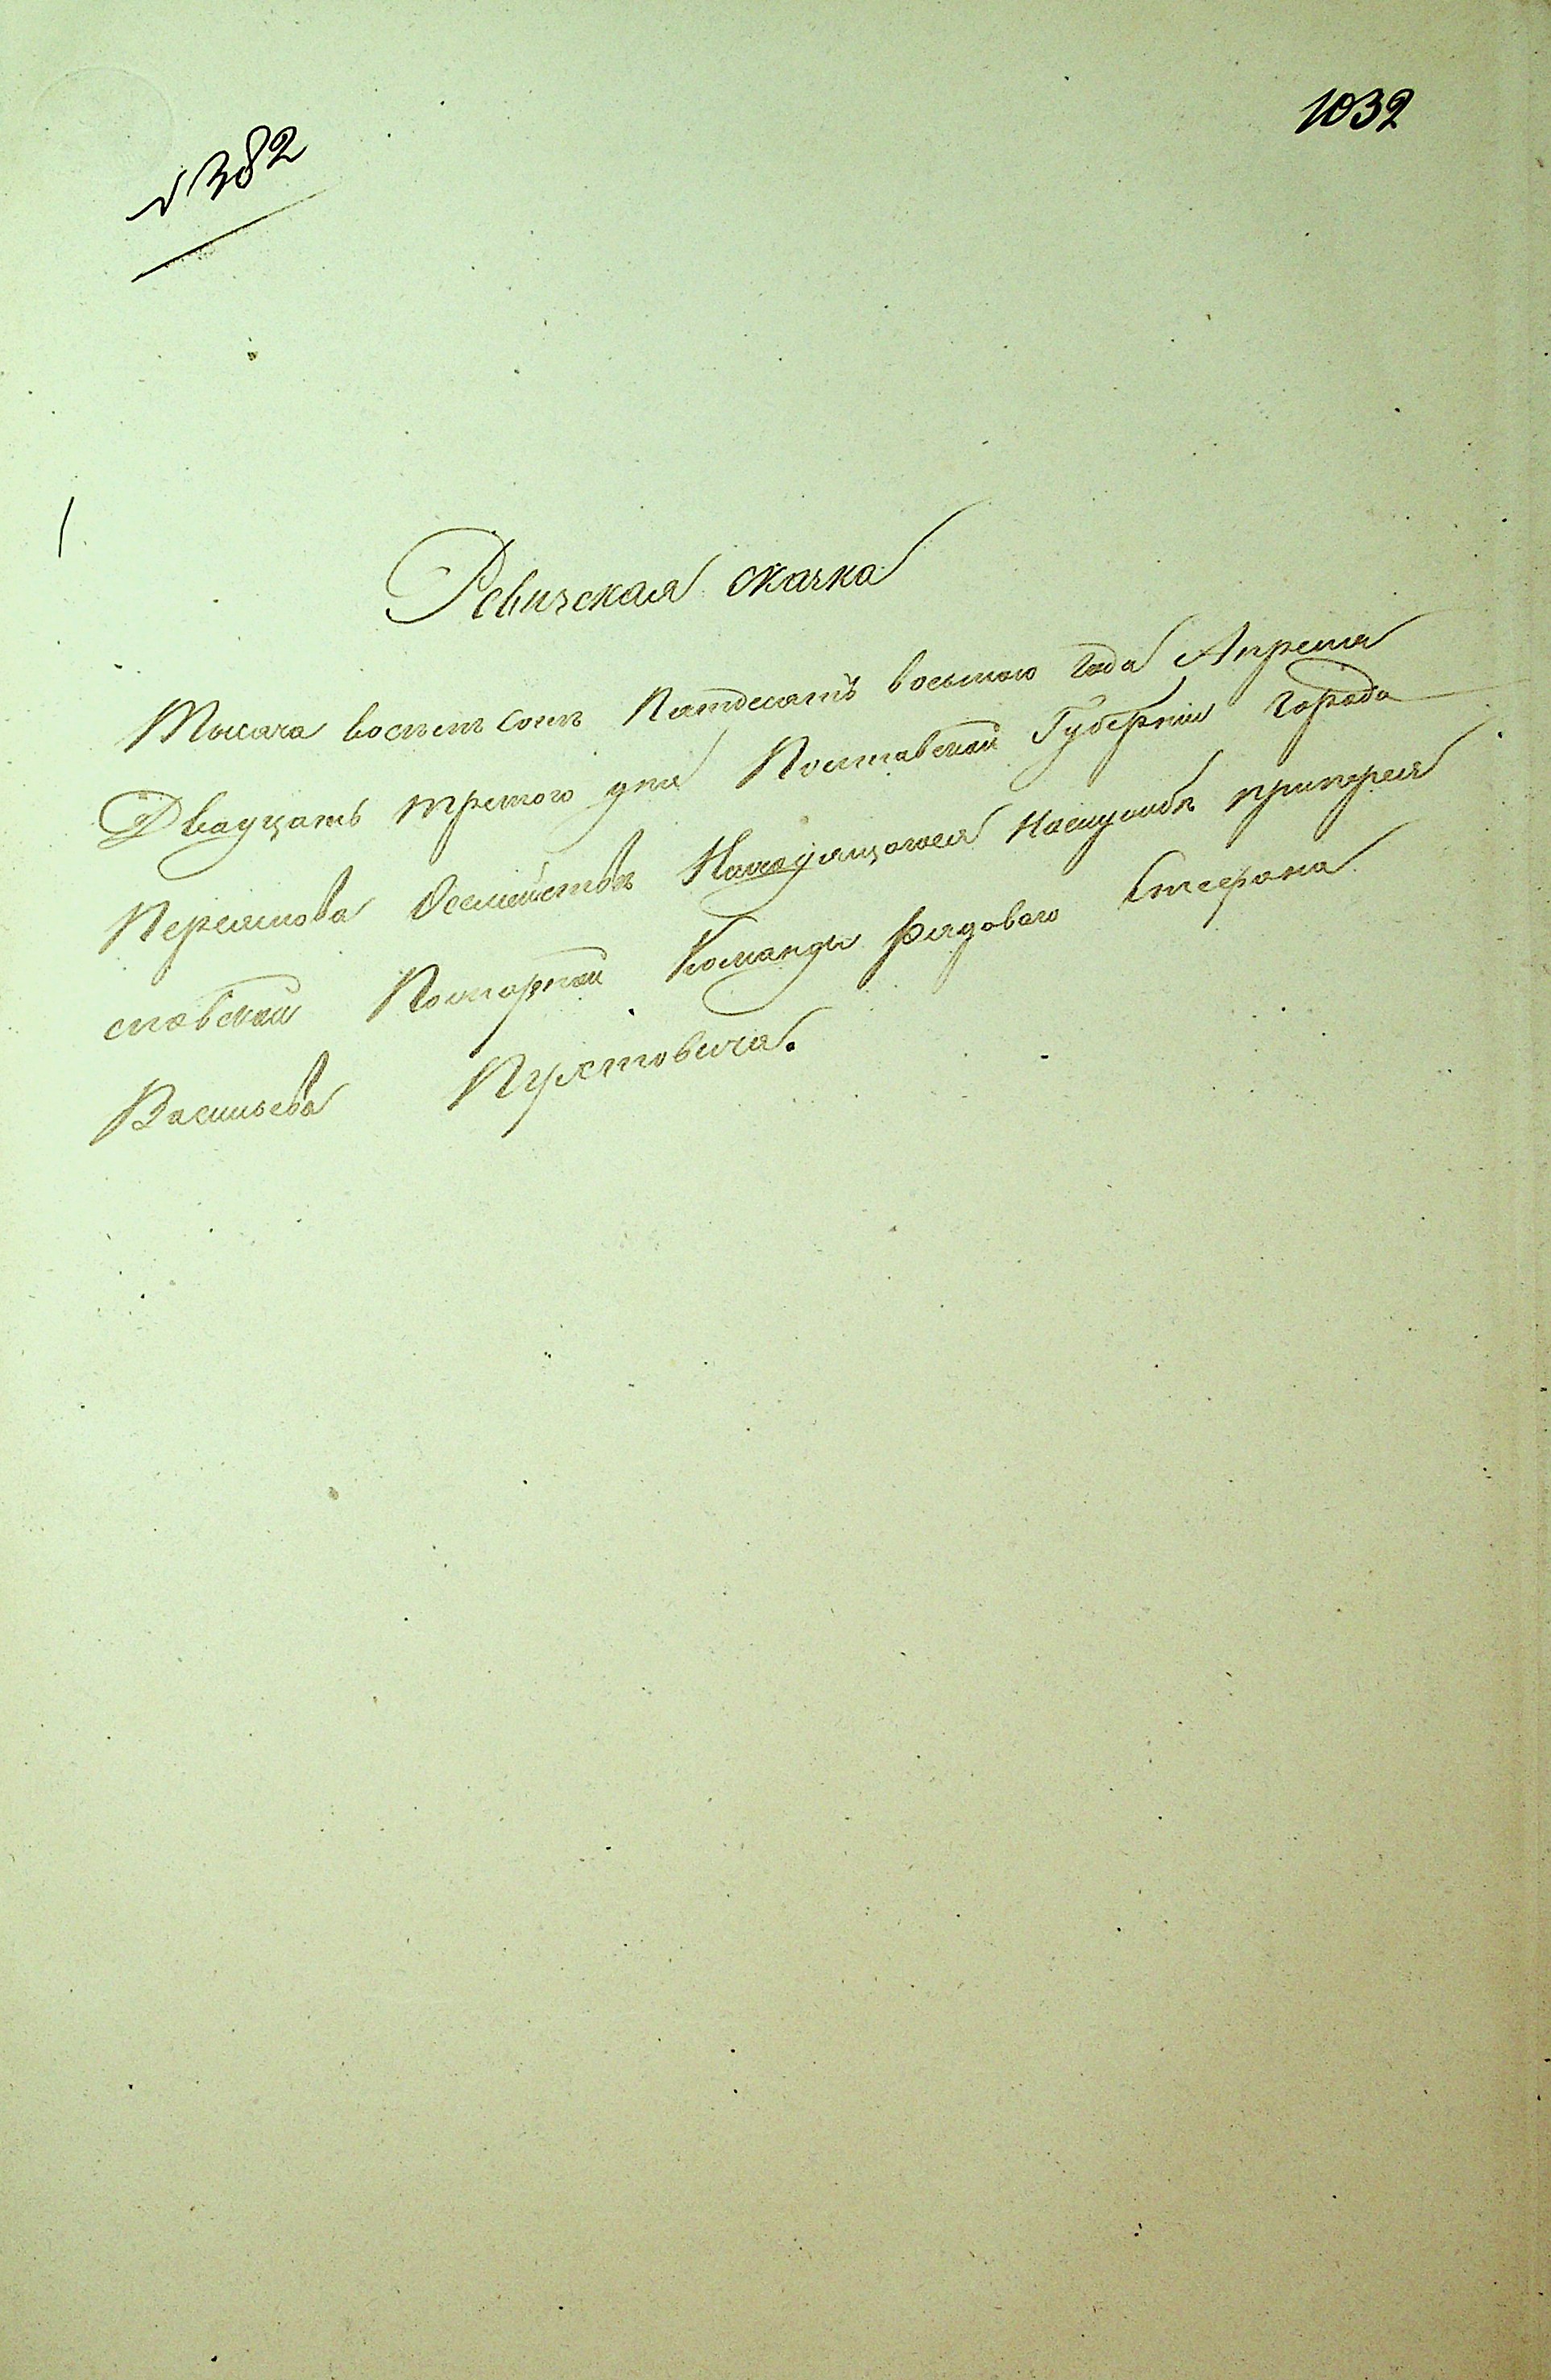 1032
№382
Ревизская сказка
Тысяча восемъ сотъ Пятдесятъ восьмого Года Апреля
Двадцать третого дня Полтавской Губерніи Города
Переяслова Осемействѣ Находящагося Наслужбѣ приперея
славской Пожарной Команды рядоваго Стефана
Васильева Пухтовича.